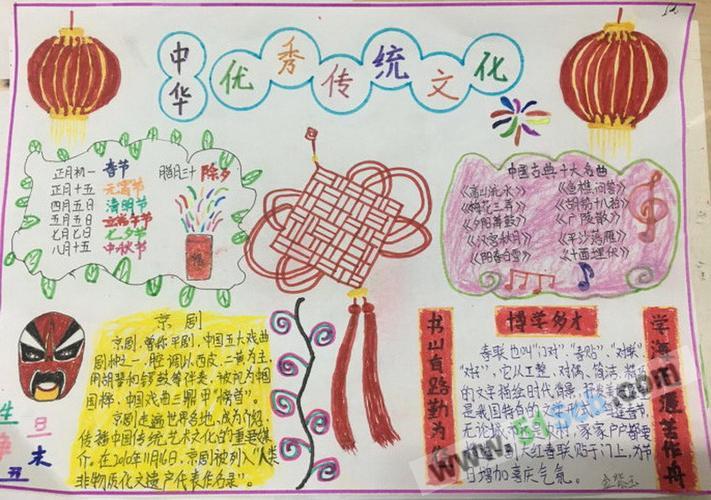 中华
优秀传统文化
正月初一 春节
正月十五 元宵节
四月五日 清明节
五月五日 端午节
七月七日 七夕节
八月十五 中秋节
腊月三十 除夕
中国古典十大名曲
《高山流水》
《梅花三弄》
《夕阳箫鼓》
《汉宫秋月》
《阳春白雪》
《渔樵问答》
《胡笳十八拍》
《广陵散》
《平沙落雁》
《十面埋伏》
京剧
京剧,曾称平剧,中国五大戏曲
剧种之一,腔调以西皮、二黄为主,
用胡琴和锣鼓等伴奏,被视为中国
国粹,中国戏曲三鼎甲"榜首"。
京剧走遍世界各地,成为介绍、
传播中国传统艺术文化的重要媒
介。在2010年11月16日,京剧被列入"人类
非物质化文遗产代表作名录"。
生旦
净末
丑
书山有路勤为
博学多才
学海 涯苦作舟
春联也叫"门对"、"春贴"、"对联"
"对",它以工整、对偶、简洁、精巧
的文字描绘时代背景,
是我国特有的文学形式。 春节,
无论城市 农村,家家户户都要
大红春联贴于门上,为节
日增加喜庆气氛。